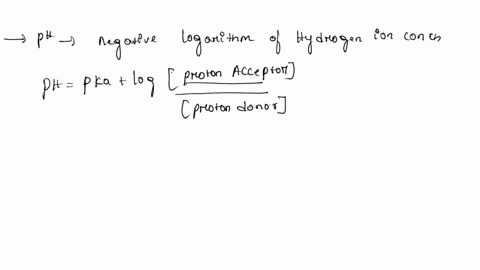 → pH → Negative logarithm of Hydrogen ion concn
pH = pka + log [proton Acceptor]
[proton donor]